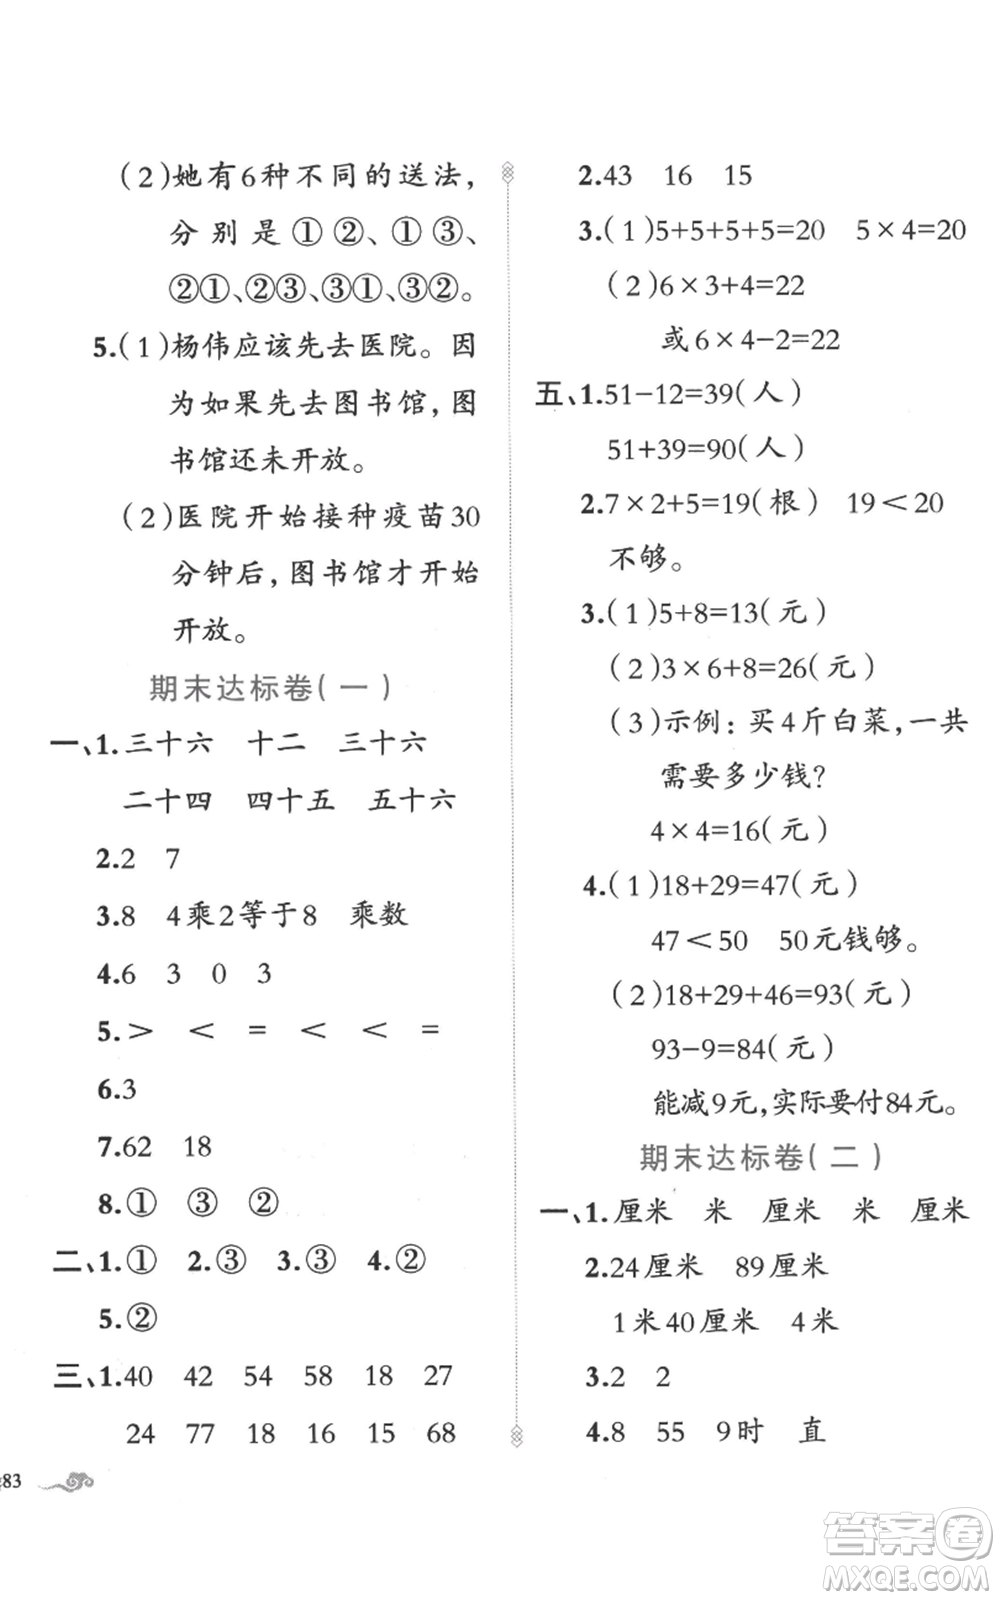 (2)她有6种不同的送法,
分别是①②、①③、
②①、②③、③①、③②。
5.(1)杨伟应该先去医院。因
为如果先去图书馆,图
书馆还未开放。
(2)医院开始接种疫苗30
分钟后,图书馆才开始
开放。
期末达标卷(一)
一、1.三十六 十二 三十六
二十四 四十五 五十六
2.2 7
3.8 4乘2等于8 乘数
4.6 3 0 3
5.> < = < < =
6.3
7.62 18
8.① ③ ②
二、1.① 2.③ 3.③ 4.②
5.②
三、1.40 42 54 58 18 27
24 77 18 16 15 68
83
2.43 16 15
3.(1)5+5+5+5=20 5×4=20
(2)6×3+4=22
或6×4-2=22
五、1.51-12=39(人)
51+39=90(人)
2.7×2+5=19(根) 19<20
不够。
3.(1)5+8=13(元)
(2)3×6+8=26(元)
(3)示例:买4斤白菜,一共
需要多少钱?
4×4=16(元)
4.(1)18+29=47(元)
47<50 50元钱够。
(2)18+29+46=93(元)
93-9=84(元)
能减9元,实际要付84元。
期末达标卷(二)
一、1.厘米 米 厘米 米 厘米
2.24厘米 89厘米
1米40厘米 4米
3.2 2
4.8 55 9时 直
答案卷
MXQE.COM